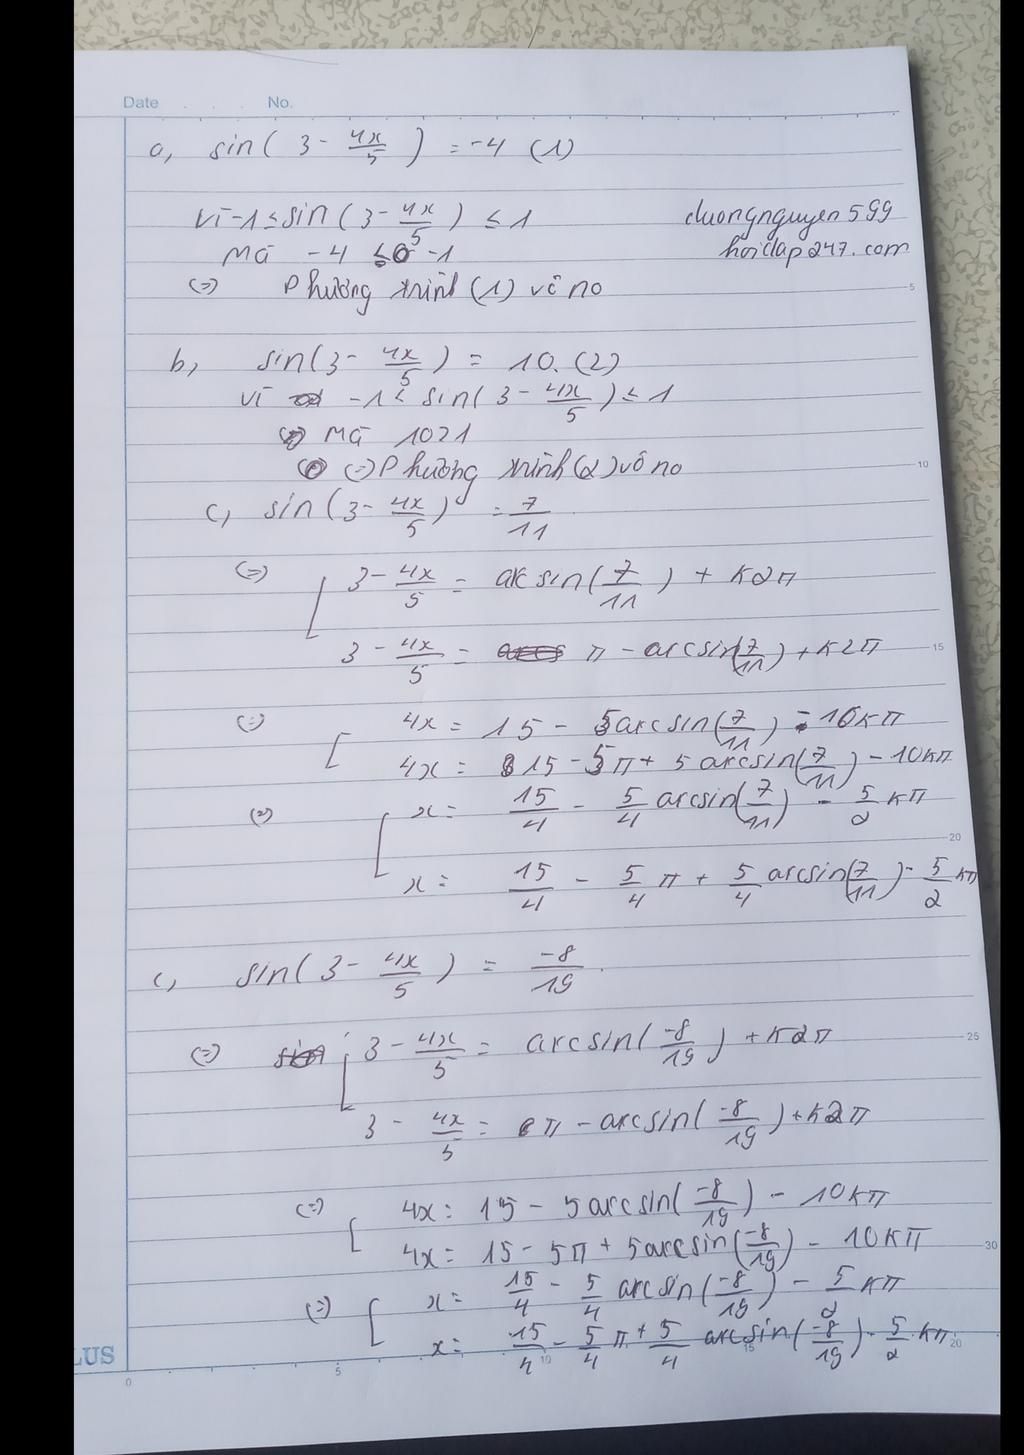 Date . . . No.
a, sin( 3 - 4x/5 ) = -4 (1)
Vì -1 ≤ sin( 3 - 4x/5 ) ≤ 1
duongnguyen599
Mà -4 ≤ -1
hoidap247.com
(=) Phương trình (1) vô no
5
b, sin( 3 - 4x/5 ) = 10. (2)
Vì -1 ≤ sin( 3 - 4x/5 ) ≤ 1
Mà 10 > 1
(=) Phương trình (2) vô no
10
c, sin( 3 - 4x/5 ) = 7/11
(=) [ 3 - 4x/5 = arcsin( 7/11 ) + k2π
3 - 4x/5 = π - arcsin( 7/11 ) + k2π
15
(=) [ 4x = 15 - 5arcsin( 7/11 ) - 10kπ
4x = 15 - 5π + 5 arcsin( 7/11 ) - 10kπ
(=) [ x = 15/4 - 5/4 arcsin( 7/11 ) - 5/2 kπ
20
x = 15/4 - 5/4 π + 5/4 arcsin( 7/11 ) - 5/2 kπ
c, sin( 3 - 4x/5 ) = -8/19.
(=) [ 3 - 4x/5 = arcsin( -8/19 ) + k2π
25
3 - 4x/5 = π - arcsin( -8/19 ) + k2π
(=) [ 4x = 15 - 5arcsin( -8/19 ) - 10kπ
4x = 15 - 5π + 5arcsin( -8/19 ) - 10kπ
30
(=) [ x = 15/4 - 5/4 arcsin( -8/19 ) - 5/2 kπ
x = 15/4 - 5/4 π + 5/4 arcsin( -8/19 ) - 5/2 kπ
LUS
0 5 10 15 20